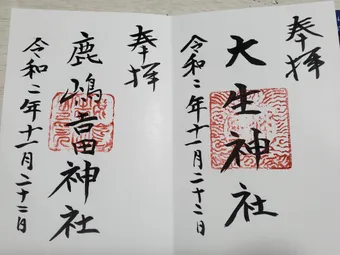 奉拝
大生神社
令和二年十一月二十二日
奉拝
鹿嶋吉田神社
令和二年十一月二十二日